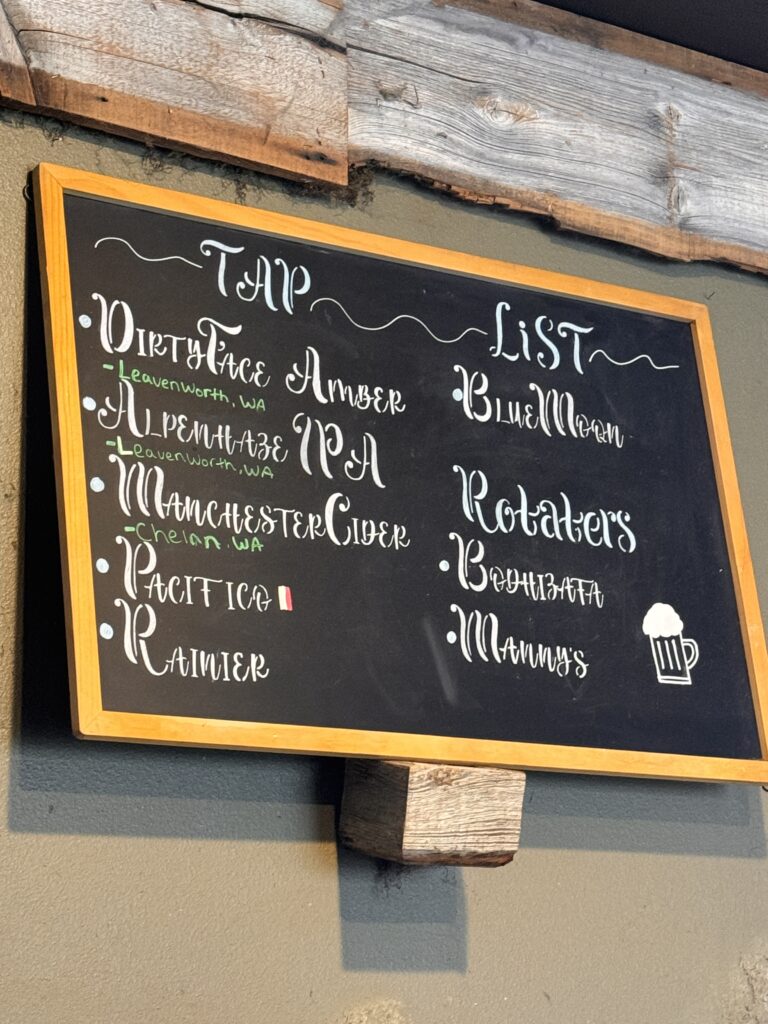 TAP LiST
DIRTYFACE AMBER
-Leavenworth, WA
ALPENHAZE IPA
-Leavenworth, WA
MANCHESTER CIDER
-Chelan, WA
PACIFICO
RAINIER
BLUEMOON
Rotaters
BODHIZAFA
MANNY'S